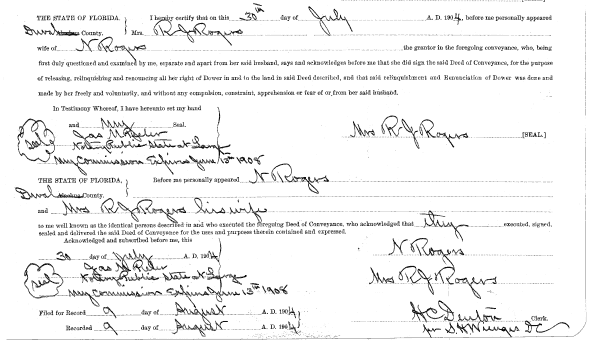 THE STATE OF FLORIDA, } I hereby certify that on this 30th day of July A. D. 1904, before me personally appeared
Duval County. Mrs. R J Rogers
wife of N Rogers the grantor in the foregoing conveyance, who, being
first duly questioned and examined by me, separate and apart from her said husband, says and acknowledges before me that she did sign the said Deed of Conveyance, for the purpose
of releasing, relinquishing and renouncing all her right of Dower in and to the land in said Deed described, and that said relinquishment and Renunciation of Dower was done and
made by her freely and voluntarily, and without any compulsion, constraint, apprehension or fear of or from her said husband.
In Testimony Whereof, I have hereunto set my hand
and my Seal.
seal Jas M
Notary Public State at Large
My Commission Expires June 13th 1908
Mrs R J Rogers [SEAL.]
THE STATE OF FLORIDA, } Before me personally appeared N Rogers
Duval County.
and Mrs R J Rogers his wife
to me well known as the identical persons described in and who executed the foregoing Deed of Conveyance, who acknowledged that they executed, signed,
sealed and delivered the said Deed of Conveyance for the uses and purposes therein contained and expressed.
Acknowledged and subscribed before me, this
30 day of July A. D. 1904
N Rogers
seal Jas M
Notary Public State at Large
My Commission Expires June 13th 1908
Mrs R J Rogers
Filed for Record 9 day of August A. D. 1904
H C Denton Clerk.
Recorded 9 day of August A. D. 1904
per D C